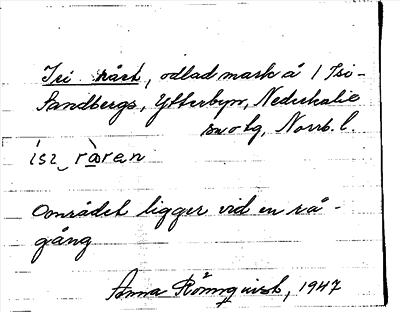 Isi rået, odlad mark å 1 Isi-
Sandbergs, Ytterbyn, Nederkalix
sn o tg, Norrb. l.
ísı‿rå̀ran
Området ligger vid en rå-
gång
Anna Rönnquist, 1947